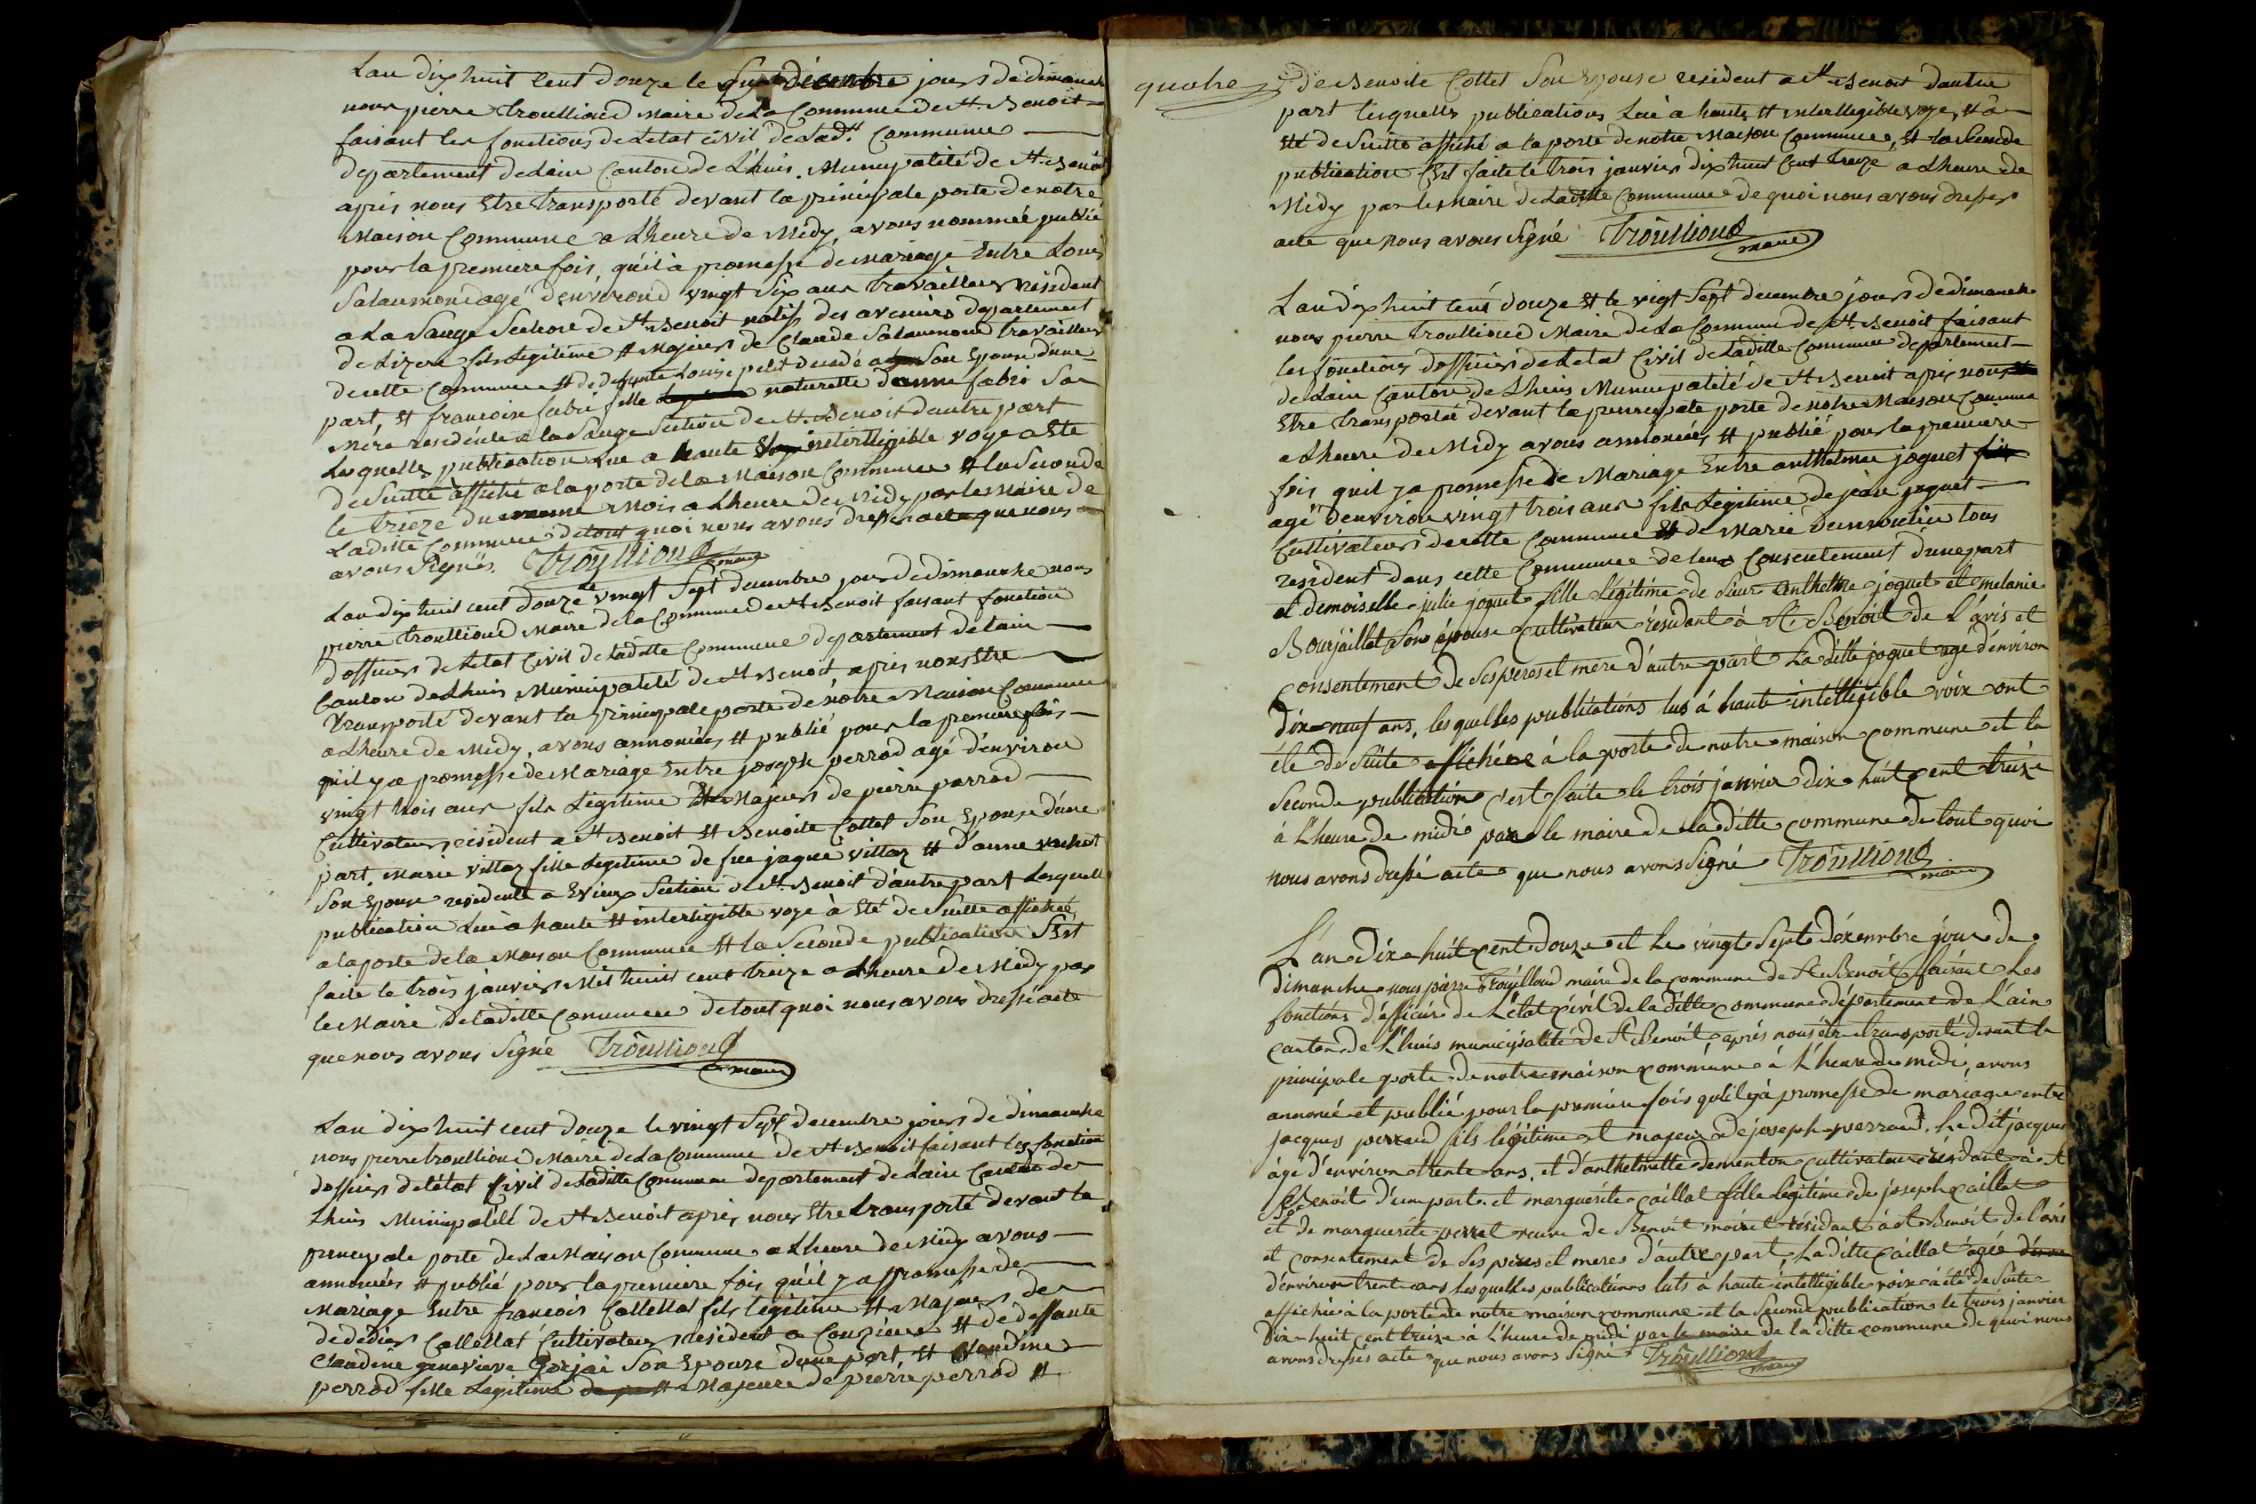 Lan dix huit Cent Douze le six décembre jour de dimanche
nous pierre Troullioud Maire de la Commune de St. Benoit
faisant les fonctions de letat civil de lad.te Commune
departement delain Canton de Lhuis. Municipalité de St Benoit
après nous Etre transporté devant la principale porte de notre
Maison Commune a Lheure de Midy, avons nommée publié
pour la premiere fois, quil à promesse de Mariage Entre Louis
Salaumond agé denviround vingt Six ans travailleur Résident
a La Sauge Section de St Benoit natif des avenirs departement
de Lizere fils Legitime et Majeur de Claude Salaumond travailleur
de cette Commune et de defunte Louise petit decedé Son Epouse dune
part, et francoise fabri fille naturelle danne fabri Sa
Mere residente a la Sauge Section de St. Benoit dautre part
Lesquelles publication Lue a haute et intertligible voye a Ete
de Suitte affiché a la porte de la Maison Commune et la Seconde
le trieze du Mois a Lheure de Midy par le Maire de
Laditte Commune detout quoi nous avons dresser acte que nous
avons Signés. Troulliond maire
Lan dix huit cent douze le vingt Sept decembre jour de dimanche nous
pierre troulliond Maire de la Commune de St Benoit faisant fonction
dofficier de Letat Civil de laditte Commune departement de lain
Canton de Lhuis Municipalité de St Benoit après nous Etre
Transporté devant la principale porte de notre Maison Commune
a Lheure de Midy, avons annoncées et publié pour la premiere fois
quil y a promesse de Mariage Entre joseph perrod agé d'environ
vingt trois ans fils Legitime et Majeur de pierre perrod
Cultivateur resident a St Benoit et Benoite Collet Son Epouse d'une
part Marie villaz fille Legitime de feu jaque villaz et d'anne
Son Epouse residente a Evieux Section de St. Benoit d'autre part Lesquelle
publication Lue à haute et interligible voye à Eté de Suitte affiché
a la porte de la Maison Commune et la Seconde publication S'est
faite le trois janvier Mil huit cent treize a Lheure de Midy par
le Maire de laditte Commune detout quoi nous avons dressé acte
que nous avons Signé Troulliond maire
Lan dix huit cent douze le vingt Sept decembre jour de dimanche
nous pierre troulliond Maire de la Commune de St Benoit faisant les fonction
dofficier de létat Civil de laditte Commune departement de Lain Canton de
Lhuis Municipalité de St Benoit après nous Etre transporté devant la
principale porte de La Maison Commune a Lheure de Midy avons
annoncées et publié pour la premiere fois qu'il y a promesse de
Mariage Entre francois Callettat fils legitime et Majeur de
de dedier Callettat Cultivateur resident a Conzieu et de deffunte
Claudine genevieve Gorjai Son Epouse dune part et Claudine
perrod fille Legitime et Majeure de pierre perrod et
quatre
de Benoite Collet Son Epouse resident a St Benoit dautre
part lesquelles publications Lué a haute et interllegible voye, et à
Eté de Suitte affiché a la porte de notre Maison Commune, et la Seconde
publication Est faite le trois janvier dix huit Cent treize a Lheure de
Midy par le Maire de Laditte Commune de quoi nous avons dresser
acte que nous avons Signé Troulliond maire
Lan dix huit cent douze et le vigt Sept decembre jour de dimanche
nous pierre troulliond Maire de la Commune de St. Benoit faisant
les fonctions dofficier de Letat Civil de laditte Commune departement
de Lain Canton de Lhuis Municipalité de St Benoit après nous
Etre transporté devant la principale porte de notre Maison Commune
a Lheure de Midy avons annoncées et publié pour la premiere
fois quil y a promesse de Mariage Entre anthelme joguet
agé denviron vingt trois ans fils Legitime de jean joguet
Cultivateur de cette Commune et de Marie tous
resident dans cette Commune de leur Consentement dune part
et demoiselle julie joguet fille légitime de Sieur anthelme joguet et melanie
Bourjaillat son épouse cultivateur résidant à St Benoit de l'avis et
consentement de ses peres et mere d'autre part Laditte joguet agé d'environ
dix neuf ans, lesquelles publications lus à haute intelligible voix ont
été de suite affichées à la porte de notre maison commune et la
Seconde publication c'est faite le trois janvier dix huit cent treize
à l'heure de midi par le maire de la ditte commune de tout quoi
nous avons dressé acte que nous avons signé Troulliond maire
L'an dix huit cent douze et le vingt sept décembre jour de
dimanche nous pierre trouilloud maire de la commune de St Benoit faisant les
fonctions d'officier de l'état civil de la ditte commune département de l'ain
canton de L'huis municipalité de St Benoit après nous être transporté devant la
principale porte de notre maison commune à l'heure de midi, avons
annoncé et publié pour la premiere fois qu'il y à promesse de mariage entre
jacques perraud fils légitime et majeur de joseph perraud. Le dit jacques
âgé d'environ trente ans, et d'anthelmette dementon cultivateur résidant à St
Benoit d'une part et marguerite caillat fille légitime de joseph caillat
et de marguerite perret veuve de Benoit moiret résidant à St Benoit de l'avis
et consentement de ses pères et meres d'autre part, La ditte caillat agée
d'environ trent ans lesquelles publications luts à haute intelligible voix à été de suite
affichée à la porte de notre maison commune et la Seconde publication le trois janvier
dix huit cent treize à l'heure de midi par le maire de la ditte commune de quoi nous
avons dressés acte que nous avons signé Troulliond maire